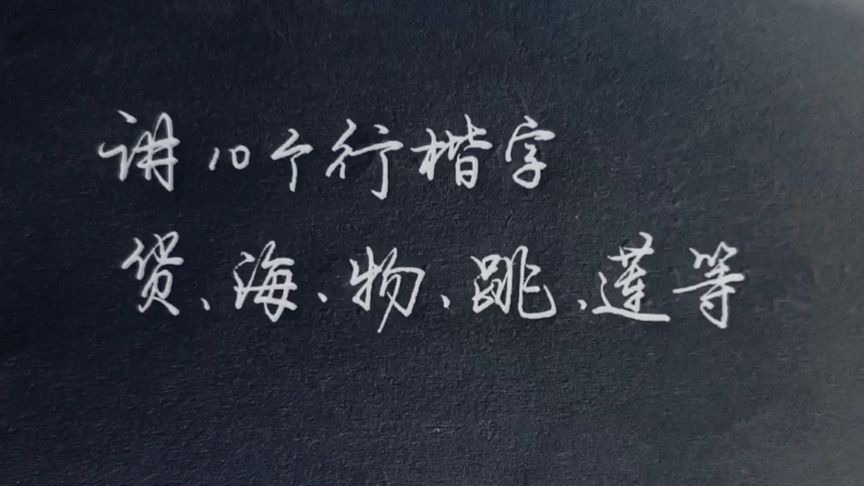 讲10个行楷字
货、海、物、跳、莲等